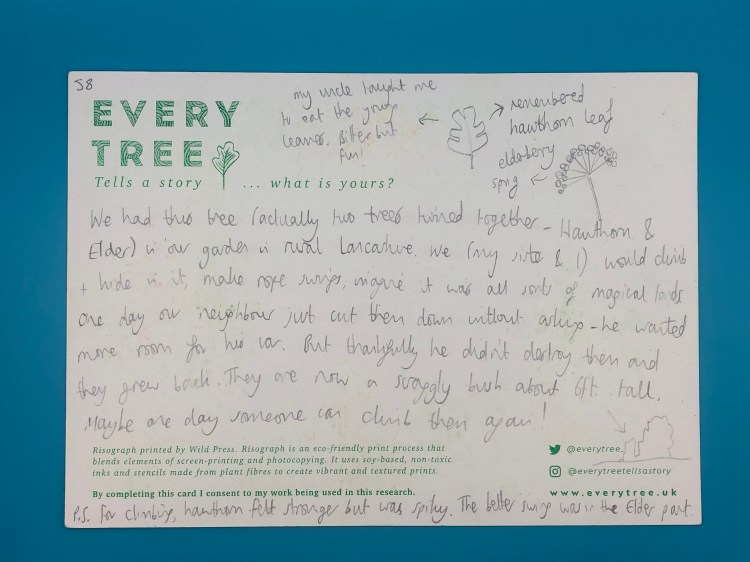 58
EVERY
TREE
Tells a story ... what is yours?
my uncle taught me
to eat the young
leaves. Bitter but
fun!
remembered
hawthorn leaf
elderberry
sprig
We had this tree (actually two trees twined together - Hawthorn &
Elder) in our garden in rural Lancashire. We (my sister & I) would climb
+ hide in it, make rope swings, imagine it was all sorts of magical lands
One day our neighbour just cut them down without asking - he wanted
more room for his car. But thankfully he didn't destroy them and
they grew back. They are now a scraggly bush about 6ft tall.
Maybe one day someone can climb them again!
Risograph printed by Wild Press. Risograph is an eco-friendly print process that
blends elements of screen-printing and photocopying. It uses soy-based, non-toxic
inks and stencils made from plant fibres to create vibrant and textured prints.
@everytree
@everytreetellsastory
By completing this card I consent to my work being used in this research.
www.everytree.uk
P.S. For climbing, hawthorn felt stronger but was spikey. The better swing was in the Elder part.